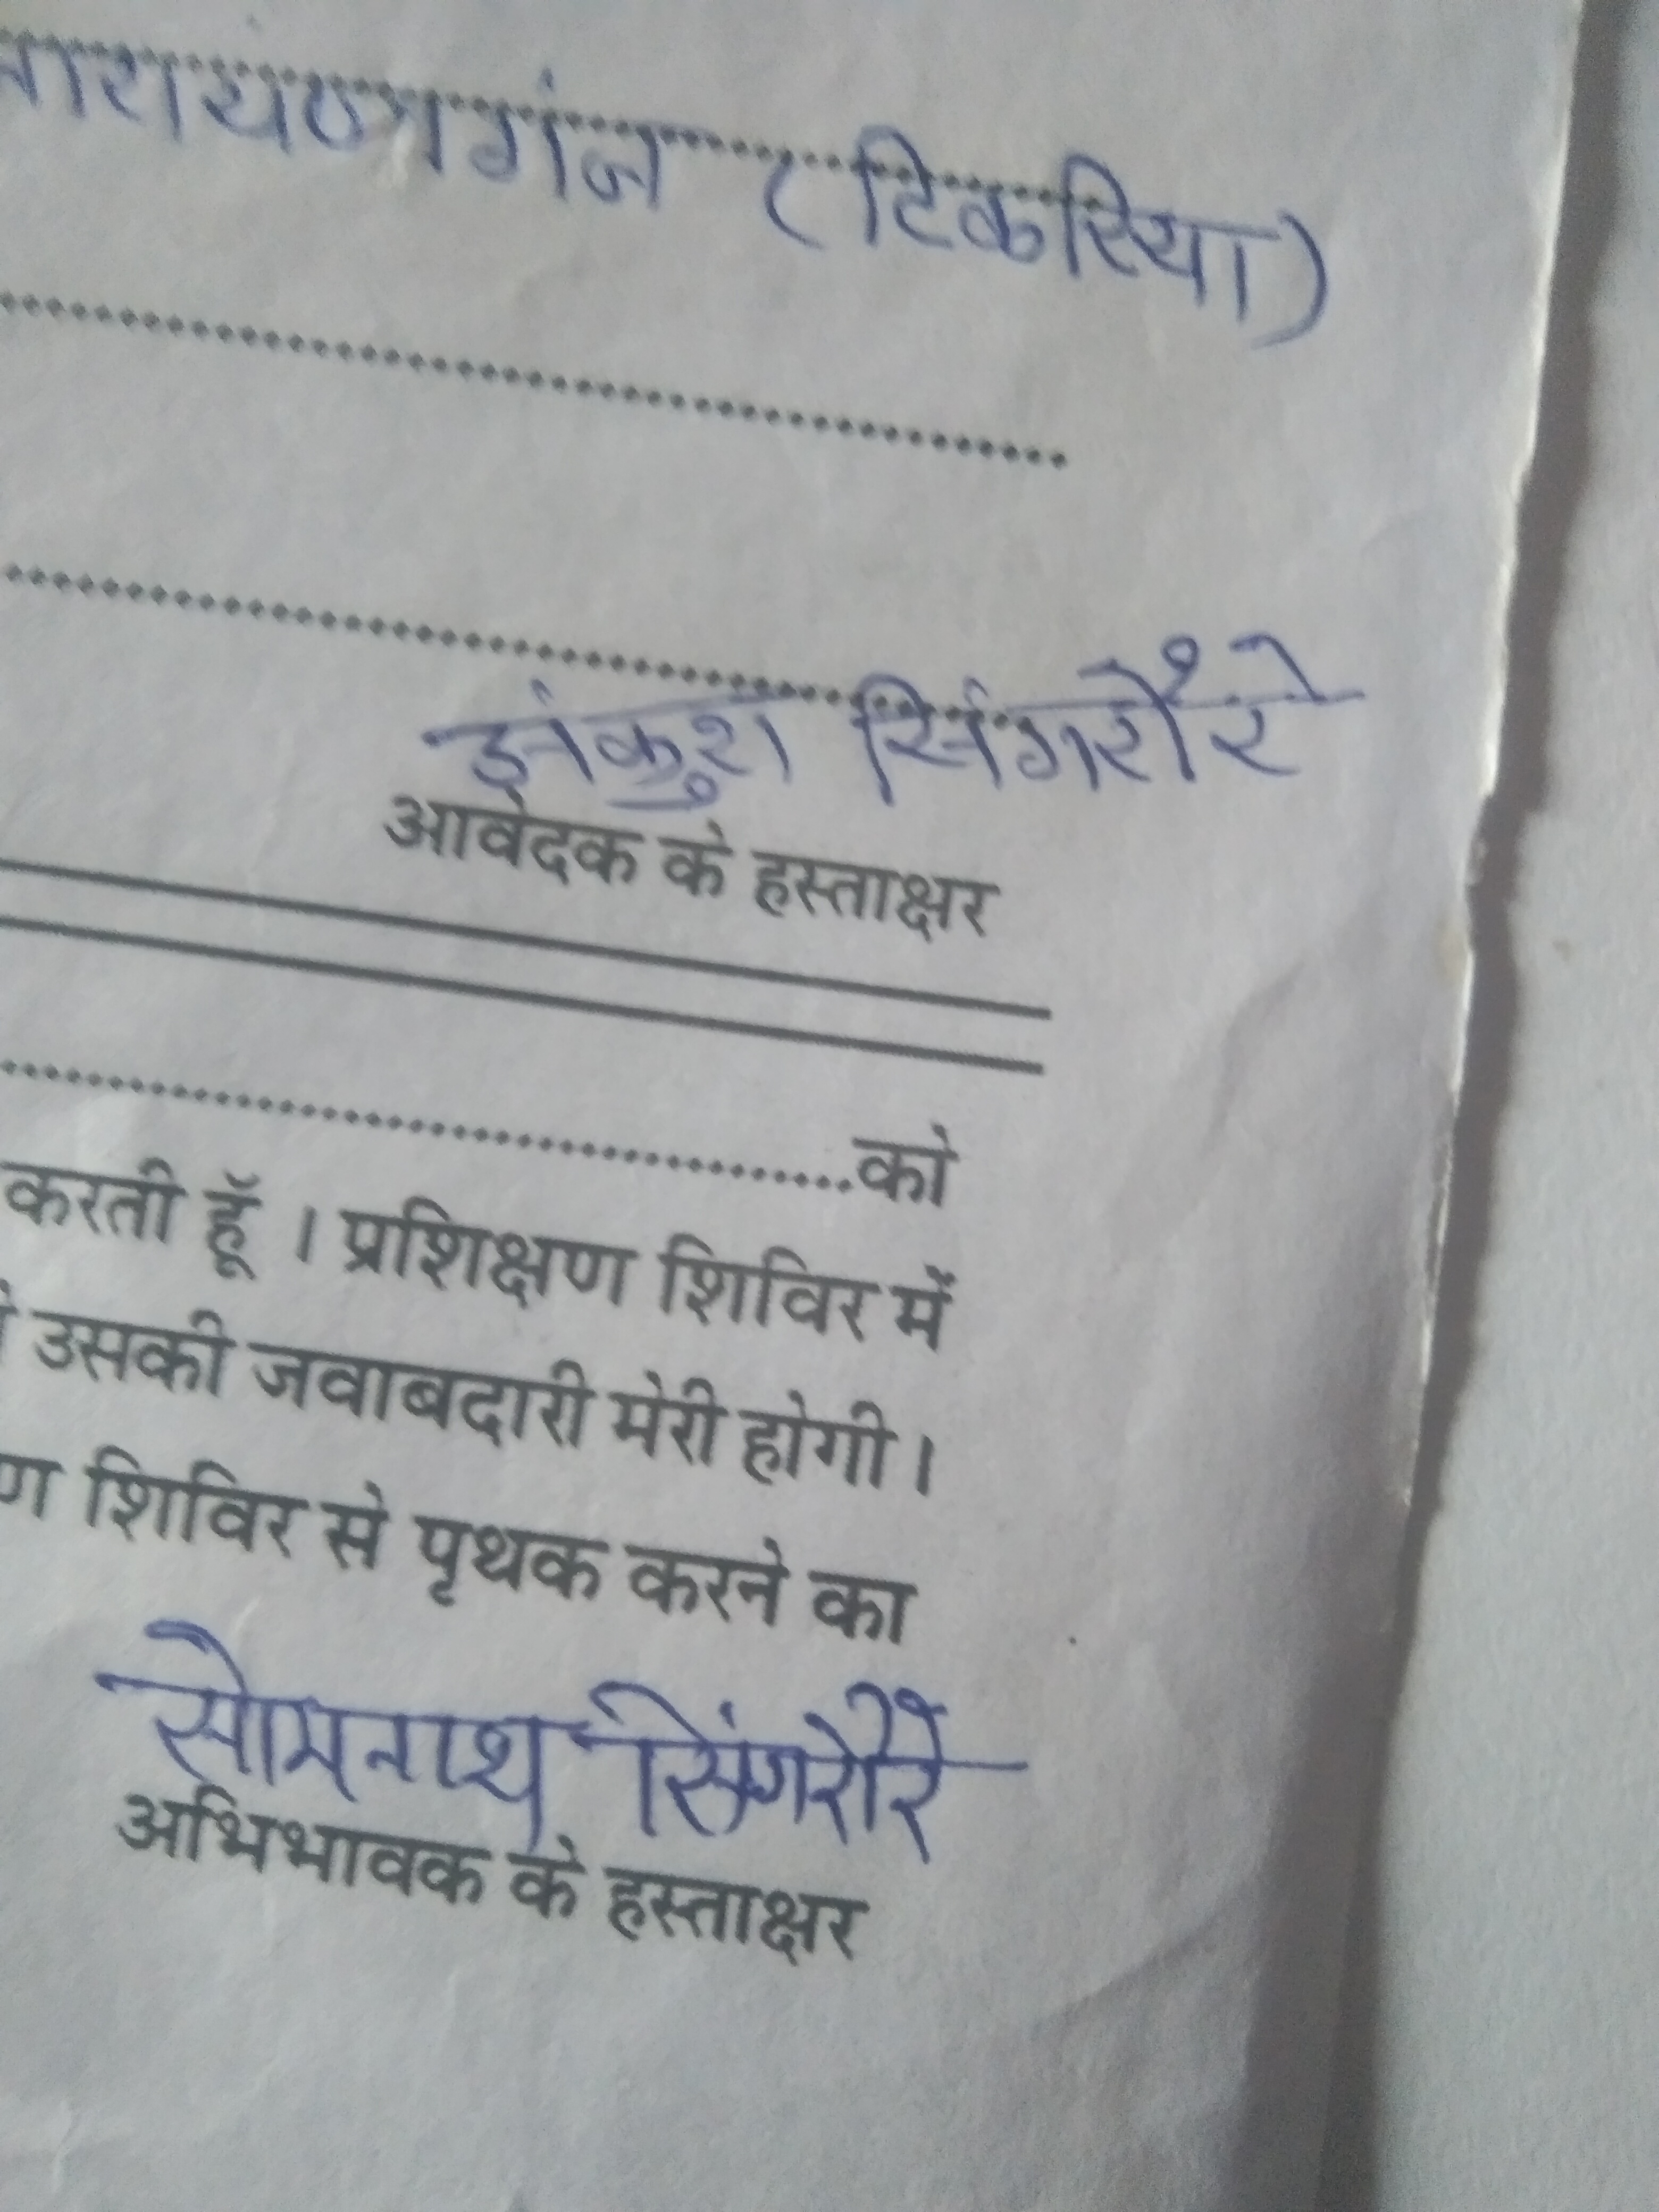 नारायणगंज (टिकरिया)
अंकुश सिंगरौरे
आवेदक के हस्ताक्षर
को
करती हूँ । प्रशिक्षण शिविर में
उसकी जवाबदारी मेरी होगी।
ण शिविर से पृथक करने का
सोमनाथ सिंगरौरे
अभिभावक के हस्ताक्षर